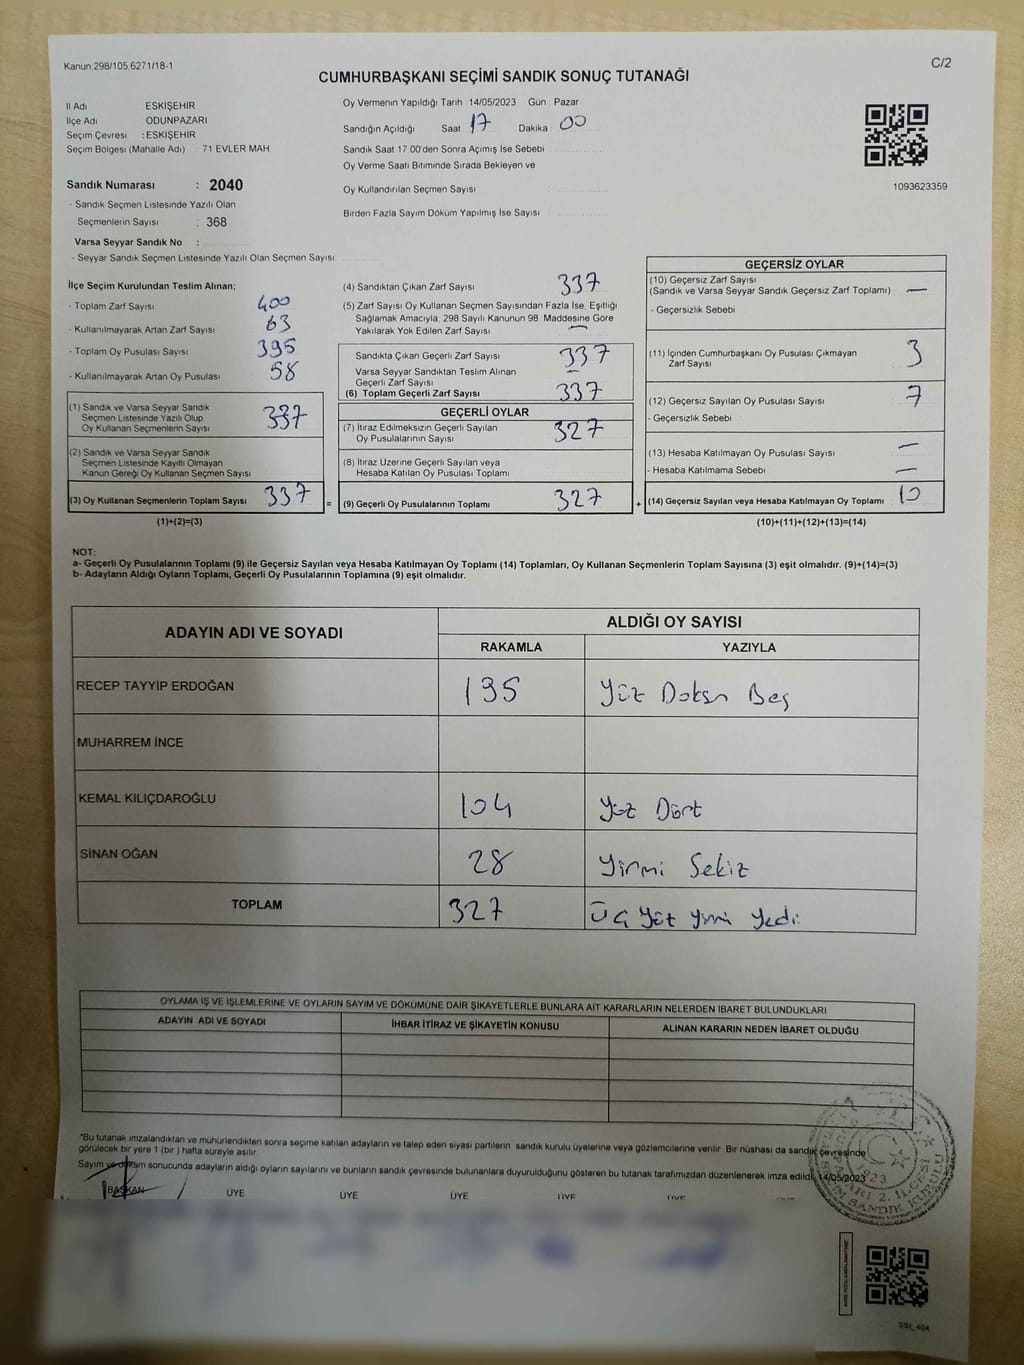 Kanun.298/105,6271/18-1
C/2
CUMHURBAŞKANI SEÇİMİ SANDIK SONUÇ TUTANAĞI
İl Adı ESKİŞEHİR
İlçe Adı ODUNPAZARI
Seçim Çevresi : ESKİŞEHİR
Seçim Bölgesi (Mahalle Adı) : 71 EVLER MAH
Sandık Numarası : 2040
- Sandık Seçmen Listesinde Yazılı Olan
Seçmenlerin Sayısı : 368
Varsa Seyyar Sandık No :
- Seyyar Sandık Seçmen Listesinde Yazılı Olan Seçmen Sayısı:
Oy Vermenin Yapıldığı Tarih 14/05/2023 Gün Pazar
Sandığın Açıldığı Saat 17 Dakika : 00
Sandık Saat 17.00'den Sonra Açımış İse Sebebi
Oy Verme Saati Bitiminde Sırada Bekleyen ve
Oy Kullandırılan Seçmen Sayısı :
Birden Fazla Sayım Döküm Yapılmış İse Sayısı :
1093623359
İlçe Seçim Kurulundan Teslim Alınan;
- Toplam Zarf Sayısı 400
- Kullanılmayarak Artan Zarf Sayısı 63
- Toplam Oy Pusulası Sayısı 395
- Kullanılmayarak Artan Oy Pusulası 58
(1) Sandık ve Varsa Seyyar Sandık
Seçmen Listesinde Yazılı Olup
Oy Kullanan Seçmenlerin Sayısı 337
(2) Sandık ve Varsa Seyyar Sandık
Seçmen Listesinde Kayıtlı Olmayan
Kanun Gereği Oy Kullanan Seçmen Sayısı
(3) Oy Kullanan Seçmenlerin Toplam Sayısı 337
(1)+(2)=(3)
(4) Sandıktan Çıkan Zarf Sayısı 337
(5) Zarf Sayısı Oy Kullanan Seçmen Sayısından Fazla İse, Eşitliği
Sağlamak Amacıyla, 298 Sayılı Kanunun 98. Maddesine Göre
Yakılarak Yok Edilen Zarf Sayısı —
Sandıkta Çıkan Geçerli Zarf Sayısı 337
Varsa Seyyar Sandıktan Teslim Alınan
Geçerli Zarf Sayısı —
(6) Toplam Geçerli Zarf Sayısı 337
GEÇERLİ OYLAR
(7) İtiraz Edilmeksizin Geçerli Sayılan
Oy Pusulalarının Sayısı 327
(8) İtiraz Üzerine Geçerli Sayılan veya
Hesaba Katılan Oy Pusulası Toplamı
= (9) Geçerli Oy Pusulalarının Toplamı 327
GEÇERSİZ OYLAR
(10) Geçersiz Zarf Sayısı
(Sandık ve Varsa Seyyar Sandık Geçersiz Zarf Toplamı) —
- Geçersizlik Sebebi
(11) İçinden Cumhurbaşkanı Oy Pusulası Çıkmayan
Zarf Sayısı 3
(12) Geçersiz Sayılan Oy Pusulası Sayısı 7
- Geçersizlik Sebebi
(13) Hesaba Katılmayan Oy Pusulası Sayısı —
- Hesaba Katılmama Sebebi —
+ (14) Geçersiz Sayılan veya Hesaba Katılmayan Oy Toplamı 10
(10)+(11)+(12)+(13)=(14)
NOT:
a- Geçerli Oy Pusulalarının Toplamı (9) ile Geçersiz Sayılan veya Hesaba Katılmayan Oy Toplamı (14) Toplamları, Oy Kullanan Seçmenlerin Toplam Sayısına (3) eşit olmalıdır. (9)+(14)=(3)
b- Adayların Aldığı Oyların Toplamı, Geçerli Oy Pusulalarının Toplamına (9) eşit olmalıdır.
ADAYIN ADI VE SOYADI
ALDIĞI OY SAYISI
RAKAMLA YAZIYLA
RECEP TAYYİP ERDOĞAN 195 Yüz Doksan Beş
MUHARREM İNCE
KEMAL KILIÇDAROĞLU 104 Yüz Dört
SİNAN OĞAN 28 Yirmi Sekiz
TOPLAM 327 Üç Yüz Yirmi Yedi
OYLAMA İŞ VE İŞLEMLERİNE VE OYLARIN SAYIM VE DÖKÜMÜNE DAİR ŞİKAYETLERLE BUNLARA AİT KARARLARIN NELERDEN İBARET BULUNDUKLARI
ADAYIN ADI VE SOYADI İHBAR İTİRAZ VE ŞİKAYETİN KONUSU ALINAN KARARIN NEDEN İBARET OLDUĞU
*Bu tutanak imzalandıktan ve mühürlendikten sonra seçime katılan adayların ve talep eden siyasi partilerin sandık kurulu üyelerine veya gözlemcilerine verilir. Bir nüshası da sandık çevresinde
görülecek bir yere 1 (bir ) hafta süreyle asılır.
Sayım ve döküm sonucunda adayların aldığı oyların sayılarını ve bunların sandık çevresinde bulunanlara duyurulduğunu gösteren bu tutanak tarafımızdan düzenlenerek imza edildi. 14/05/2023
BAŞKAN ÜYE ÜYE ÜYE ÜYE ÜYE
1923
2. İLÇESİ
SANDIK KURULU
SSI_404